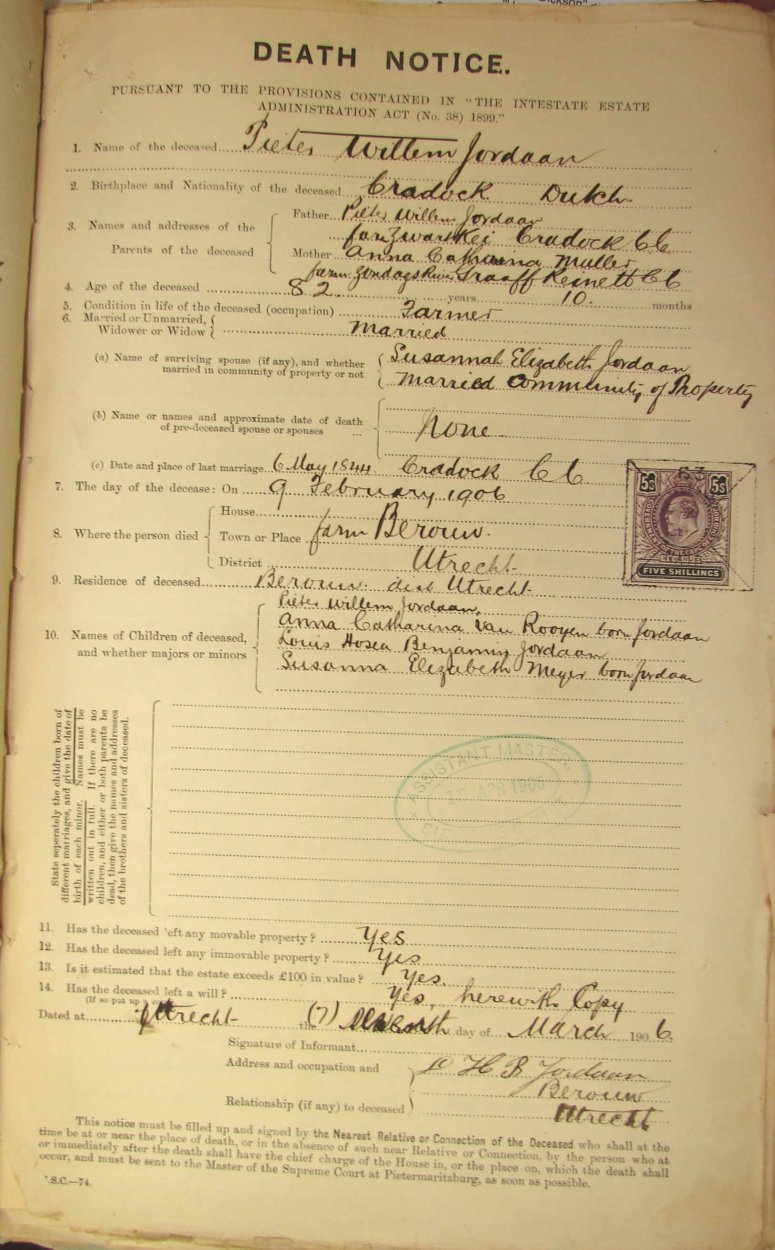 DEATH NOTICE.
PURSUANT TO THE PROVISIONS CONTAINED IN "THE INTESTATE ESTATE
ADMINISTRATION ACT (No. 38) 1899."
1. Name of the deceased Pieter Willem Jordaan
2. Birthplace and Nationality of the deceased Cradock Dutch
3. Names and addresses of the Parents of the deceased
Father Pieter Willem Jordaan
farm Zwartkei Cradock CC
Mother Anna Catharina Muller
farm Zondags River Graaff Reinett CC
4. Age of the deceased 82 years 10 months
5. Condition in life of the deceased (occupation) Farmer
6. Married or Unmarried, Widower or Widow Married
(a) Name of surviving spouse (if any), and whether married in community of property or not
Susannah Elizabeth Jordaan
Married Community of Property
(b) Name or names and approximate date of death of pre-deceased spouse or spouses ... None
(c) Date and place of last marriage 6 May 1844 Cradock CC
7. The day of the decease: On 9 February 1906
8. Where the person died
House
Town or Place farm Berouw
District Utrecht
5S 5S
FIVE SHILLINGS
9. Residence of deceased Berouw dist Utrecht
10. Names of Children of deceased, and whether majors or minors
Pieter Willem Jordaan
Anna Catharina van Rooyen born Jordaan
Louis Hosea Benjamin Jordaan
Susanna Elizabeth Meyer born Jordaan
State seperately the children born of
different marriages, and give the date of
birth of each minor. Names must be
written out in full. If there are no
children, and either or both parents be
dead, then give the names and addresses
of the brothers and sisters of deceased.
ASSISTANT MASTER
APR 1906
11. Has the deceased left any movable property? Yes
12. Has the deceased left any immovable property? Yes
13. Is it estimated that the estate exceeds £100 in value? Yes.
14. Has the deceased left a will? Yes, herewith Copy
(If so put up a
Dated at Utrecht the (7) day of March 1906.
Signature of Informant
Address and occupation and H B Jordaan
Berouw
Relationship (if any) to deceased Utrecht
This notice must be filled up and signed by the Nearest Relative or Connection of the Deceased who shall at the
time be at or near the place of death, or in the absence of such near Relative or Connection, by the person who at
or immediately after the death shall have the chief charge of the House in, or the place on, which the death shall
occur, and must be sent to the Master of the Supreme Court at Pietermaritzburg, as soon as possible.
S.C.—74.